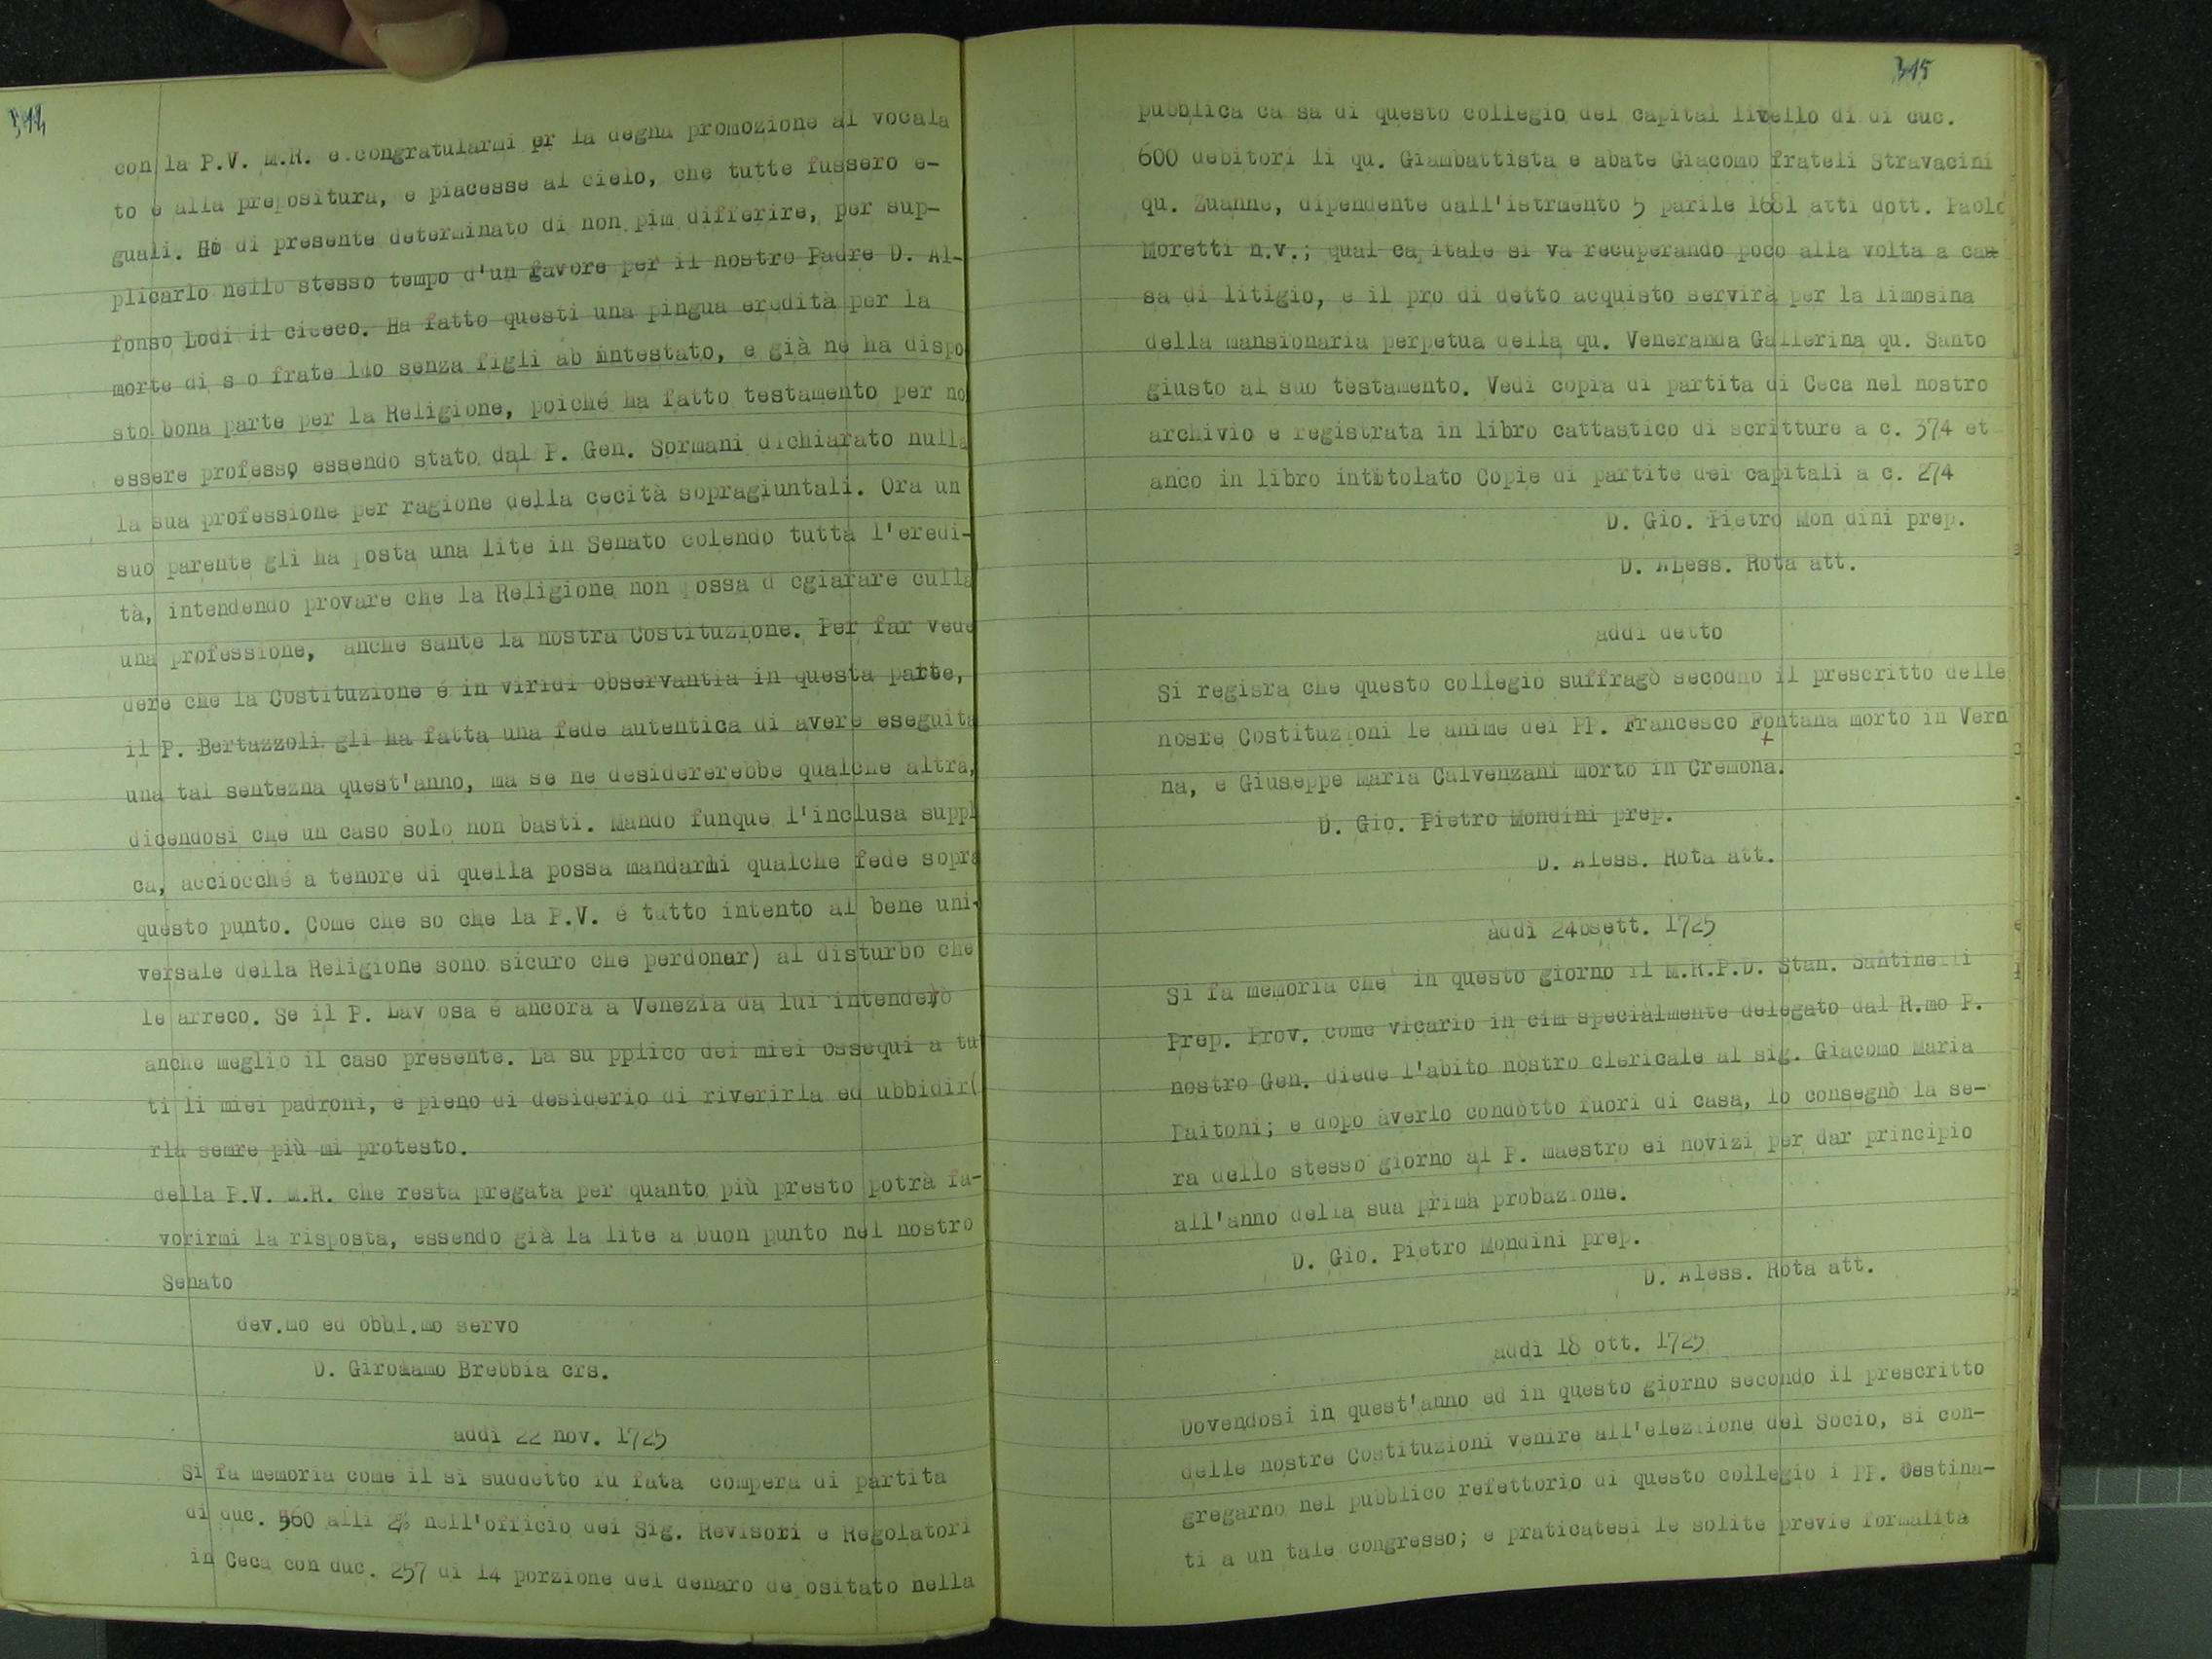 314
con la P.V. M.R. e congratularmi er la degna promozione al vocala
to e alla prepositura, e piacesse al cielo, che tutte fussero e-
guali. Hò di presente determinato di non pim differire, per sup-
plicarlo nello stesso tempo d'un favore per il nostro Padre D. Al-
fonso Lodi il cieco. Ha fatto questi una pingua eredità per la
morte di s o frate llo senza figli ab intestato, e già ne ha dispo
sto bona parte per la Religione, poiché ha fatto testamento per no
essere professo, essendo stato dal P. Gen. Sormani dichiarato nulla
la sua professione per ragione della cecità sopragiuntali. Ora un
suo parente gli ha posta una lite in Senato volendo tutta l'eredi-
tà, intendendo provare che la Religione non possa d cgiarare culla
una professione, anche sante la nostra Costituzione. Per far vede
dere che la Costituzione é in viridi observantia in questa parte,
il P. Bertazzoli gli ha fatta una fede autentica di avere eseguita
una tal sentezna quest'anno, ma se ne desidererebbe qualche altra,
dicendosi che un caso solo non basti. Mando funque l'inclusa suppl
ca, acciocché a tenore di quella possa mandarmi qualche fede sopra
questo punto. Come che so che la P.V. é tutto intento al bene uni-
versale della Religione sono sicuro che perdoner) al disturbo che
le arreco. Se il P. Lav osa é ancora a Venezia da lui intenderò
anche meglio il caso presente. La su pplico dei miei ossequi a tu
ti li miei padroni, e pieno di desiderio di riverirla ed ubbidir(
rla semre più mi protesto.
della P.V. M.R. che resta pregata per quanto più presto potrà fa-
vorirmi la risposta, essendo già la lite a buon punto nel nostro
Senato
dev.mo ed obbl.mo servo
D. Girolamo Brebbia crs.
addì 22 nov. 1725
Si fa memoria come il sì suddetto fu fata compera di partita
di duc. 560 alli 2% nell'officio dei Sig. Revisori e Regolatori
in Ceca con duc. 257 di 14 porzione del denaro de ositato nella
315
pubblica ca sa di questo collegio del capital livello di di cuc.
600 debitori li qu. Giambattista e abate Giacomo frateli Stravacini
qu. Zuanne, dipendente dall'istrmento 5 parile 1681 atti dott. Paolo
Moretti n.v.; qual ca itale si va recuperando poco alla volta a cau
sa di litigio, e il pro di detto acquisto servirà per la limosina
della mansionaria perpetua della qu. Veneranda Gallerina qu. Santo
giusto al suo testamento. Vedi copia di partita di Ceca nel nostro
archivio e registrata in libro cattastico di scritture a c. 374 et
anco in libro intitolato Copie di partite dei capitali a c. 274
D. Gio. Pietro Mon dini prep.
D. ALess. Rota att.
addì detto
Si regisra che questo collegio suffragò secodno il prescritto delle
nosre Costituzioni le anime dei PP. Francesco Fontana morto in Vern
na, e Giuseppe Maria Calvenzani morto in Cremona.
D. Gio. Pietro Mondini prep.
D. Aless. Rota att.
addì 24 sett. 1725
Si fa memoria che in questo giorno il M.R.P.D. Stan. Santinelli
Prep. Prov. come vicario in cim specialmente delegato dal R.mo P.
nostro Gen. diede l'abito nostro clericale al sig. Giacomo Maria
Paitoni; e dopo averlo condotto fuori di casa, lo consegnò la se-
ra dello stesso giorno al P. maestro ei novizi per dar principio
all'anno della sua prima probazione.
D. Gio. Pietro Mondini prep.
D. Aless. Rota att.
addì 18 ott. 1725
Dovendosi in quest'anno ed in questo giorno secondo il prescritto
delle nostre Costituzioni venire all'elezione del Socio, si con-
gregarno nel pubblico refettorio di questo collegio i PP. Destina-
ti a un tale congresso; e praticatesi le solite previe formalità